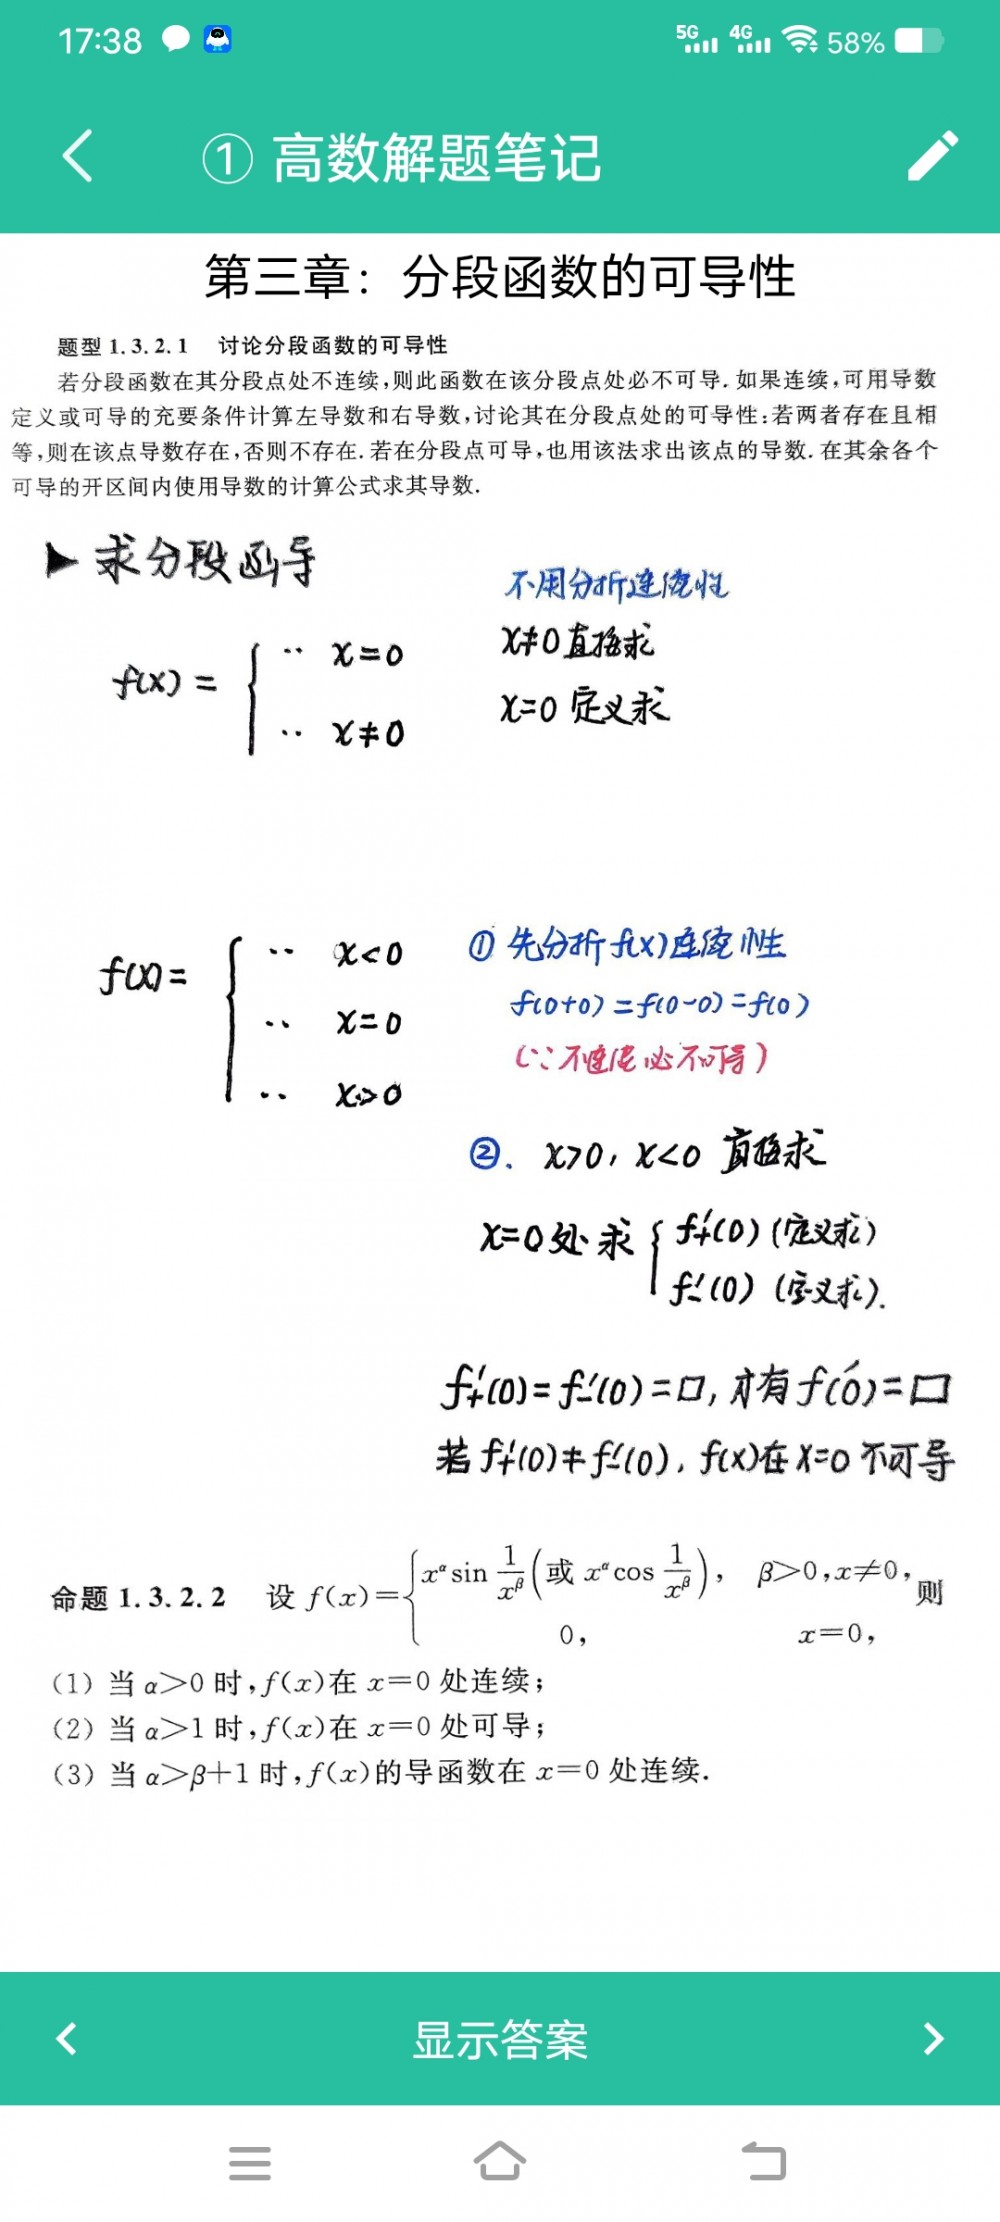 17:38 5G 4G 58%
① 高数解题笔记
第三章：分段函数的可导性
题型 1.3.2.1 讨论分段函数的可导性
若分段函数在其分段点处不连续,则此函数在该分段点处必不可导.如果连续,可用导数
定义或可导的充要条件计算左导数和右导数,讨论其在分段点处的可导性:若两者存在且相
等,则在该点导数存在,否则不存在.若在分段点可导,也用该法求出该点的导数.在其余各个
可导的开区间内使用导数的计算公式求其导数.
▶ 求分段函导
不用分析连续性
f(x) = { ‥ x=0
‥ x≠0
x≠0 直接求
x=0 定义求
f(x) = { ‥ x<0
‥ x=0
‥ x>0
① 先分析f(x)连续性
f(0+0) = f(0-0) = f(0)
(∵不连续必不可导)
②. x>0, x<0 直接求
x=0处求 { f₊′(0) (定义求)
f₋′(0) (定义求).
f₊′(0) = f₋′(0) = 口, 才有 f′(0) = 口
若 f₊′(0) ≠ f₋′(0), f(x)在 x=0 不可导
命题 1.3.2.2 设 f(x)={ x^α sin 1/x^β (或 x^α cos 1/x^β), β>0,x≠0, 则
0, x=0,
(1) 当 α>0 时,f(x)在 x=0 处连续;
(2) 当 α>1 时,f(x)在 x=0 处可导;
(3) 当 α>β+1 时,f(x)的导函数在 x=0 处连续.
显示答案